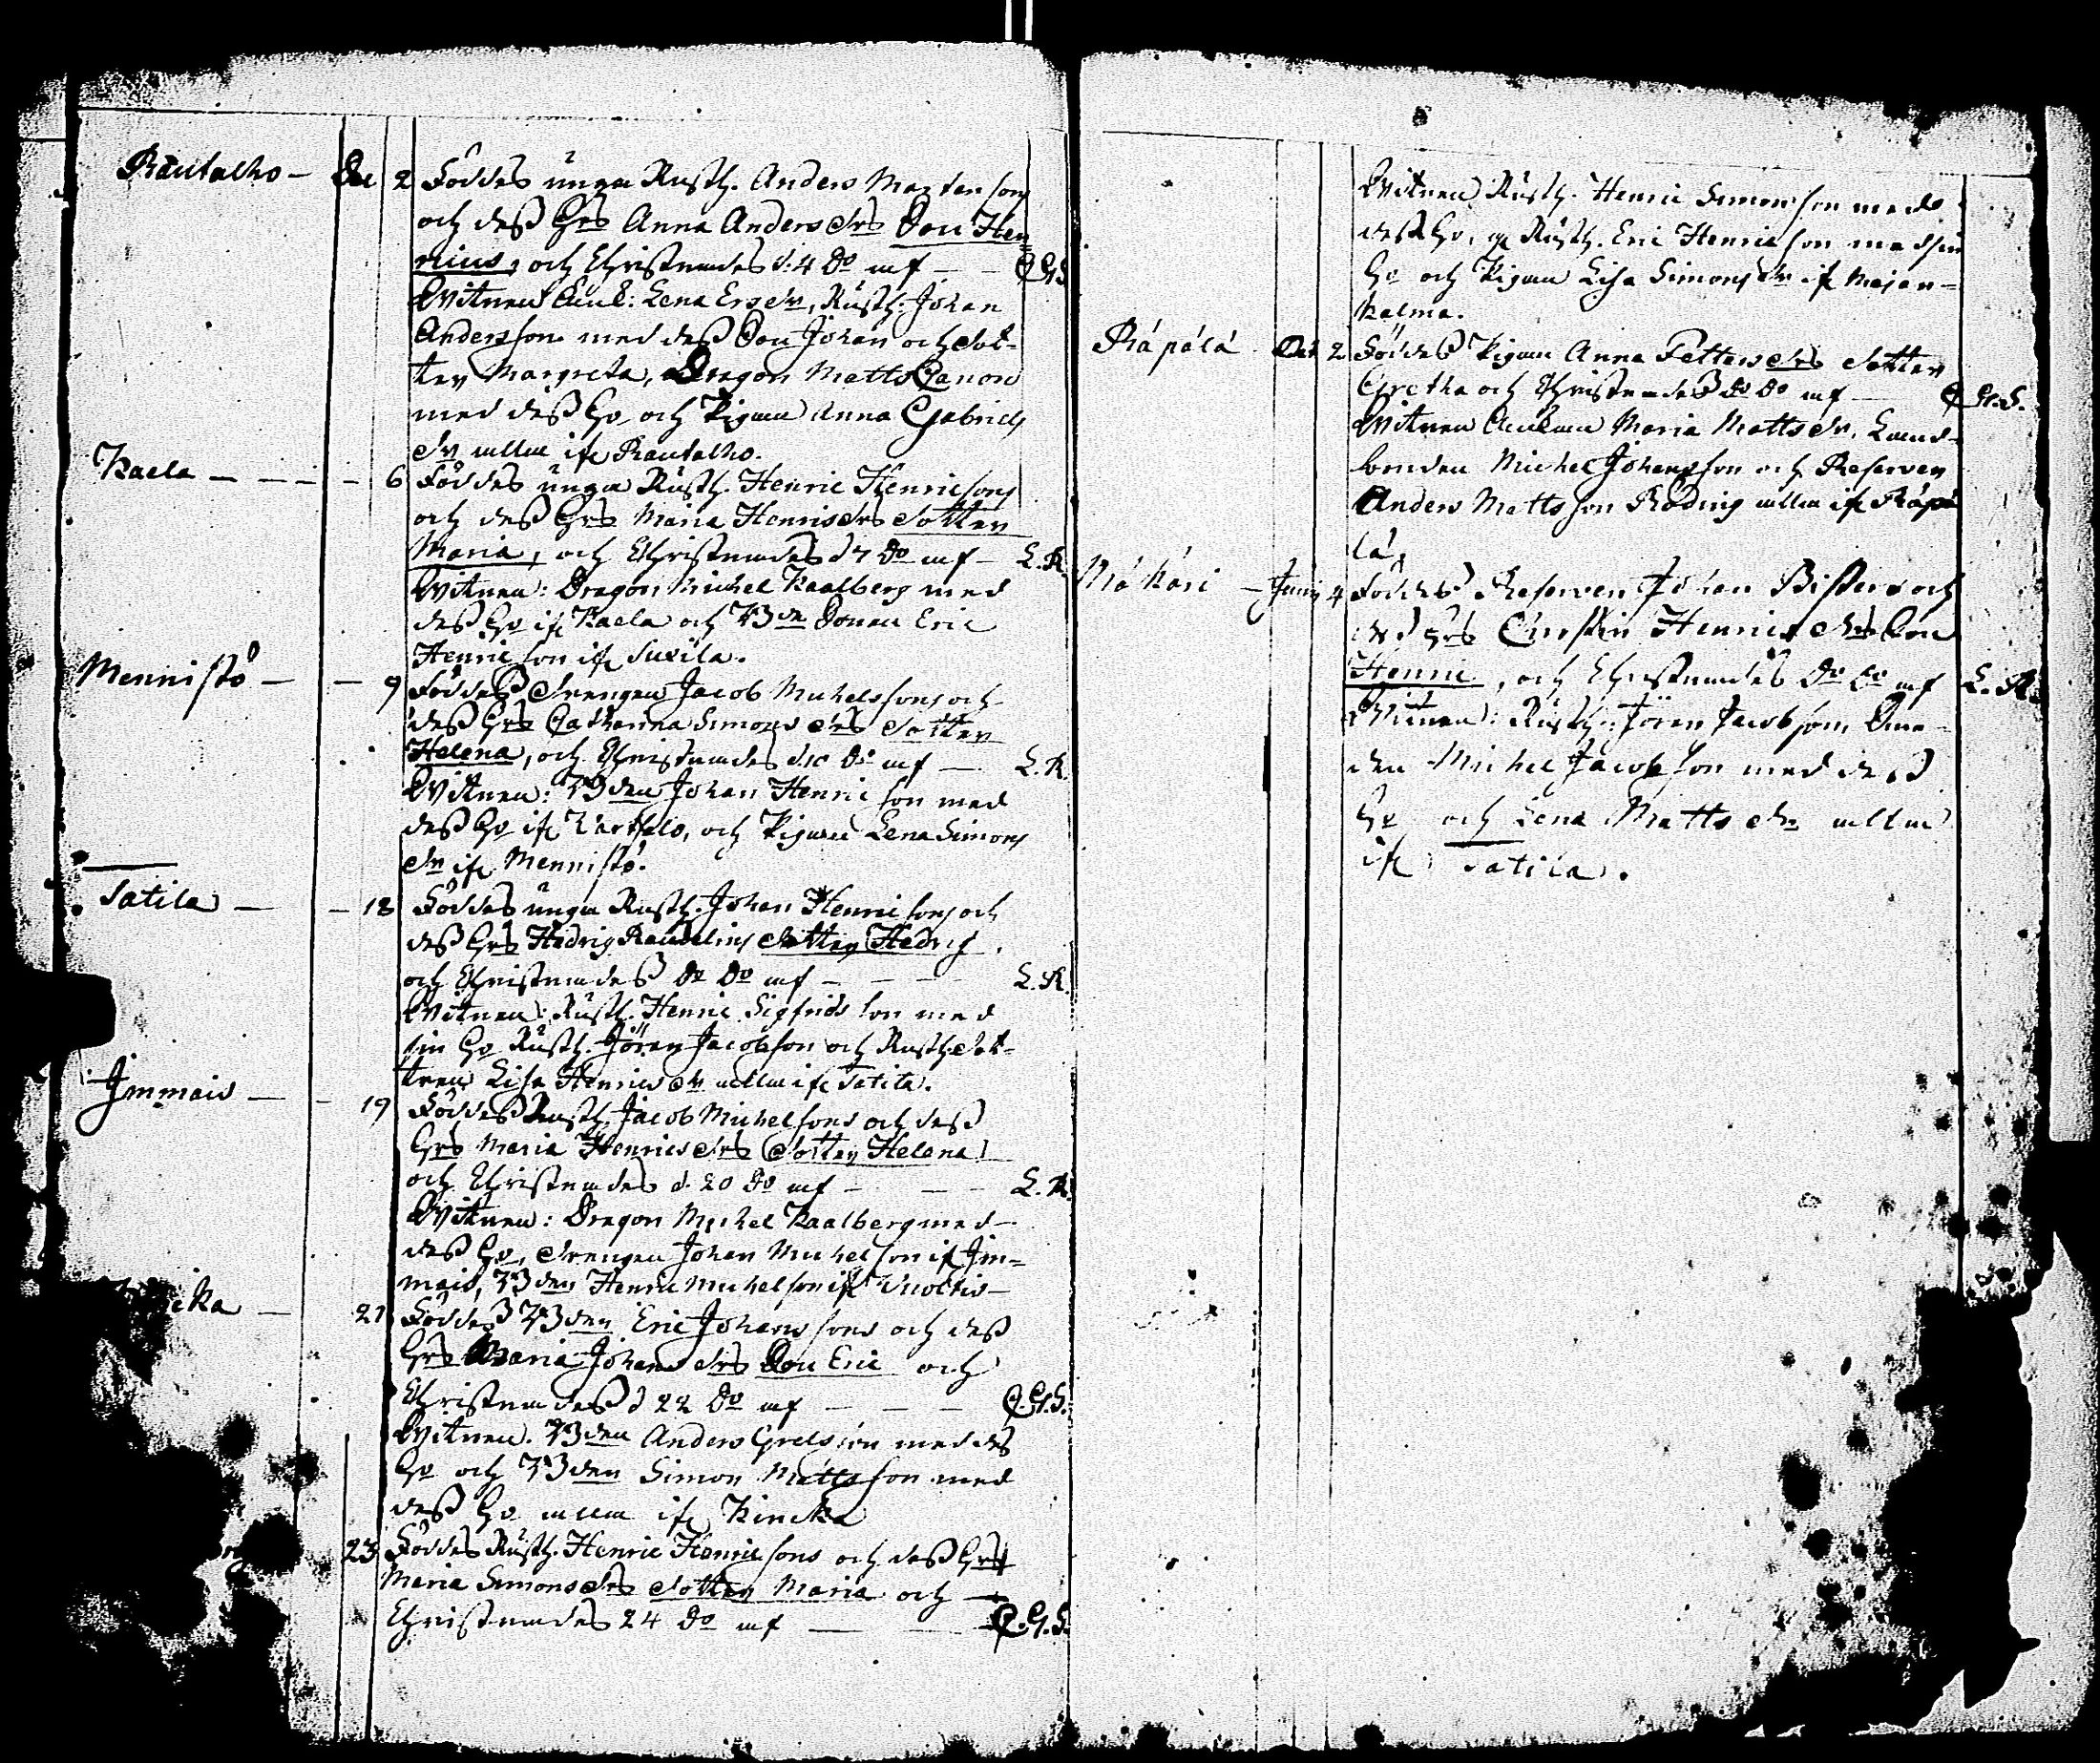 Rautalho — Dec 2 Föddes unga Rusth. Anders Martensons
och dess Hrs Anna Anders drs Son Hen=
ricus, och Christnades d: 4 do af — — C. G. S.
Witnen Enk: Lena Ers dr, Rusth: Johan
Andersson med dess Son Johan och dot-
ter Margreta, Dragon Matts Canon
med dess Ho och Pigan Anna Gabriels
dr alla if Rautalho.
Kaela — — — — 6 Föddes unga Rusth. Henric Henricsons
och dess Hrs Maria Henrics drs dotter
Maria, och Christnades d 7 do af — L. R.
Witnen: Dragon Michel Kaalberg med
dess Ho if Kaela och Bden Sonen Eric
Henricson if Suxila.
Mennistö — — 9 Föddes Drengen Jacob Michelssons och
dess Hrs Catharina Simons drs dotter
Helena, och Christnades d. 10 do af — L. R.
Witnen: Bden Johan Henricson med
dess Ho if, och Pigan Lena Simons
dr if Mennistö.
Satila — — 18 Föddes unga Rusth. Johan Henricsons och
dess Hrs Hedvig dotter Hedvig
och Christnades do do af — — — L. R.
Witnen: Rusth. Henric Sigfridsson med
sin Ho Rusth. Jöran Jacobsson och Rusth. dot-
tren Lisa Henrics dr alla if Satila.
Immais — — 19 Föddes Rusth. Jacob Michelsons och dess
Hrs Maria Henrics drs dotter Helena
och Christnades d. 20 do af — — — L. R.
Witnen: Dragon Michel Kaalberg med
dess Ho, Drengen Johan Michelson if Im=
mais, Bden Henric Michelson if Vuoltis —
cka — 21 Föddes Bden Eric Johanssons och dess
Hrs Maria Johans drs Son Eric och
Christnades d 22 do af — — — C. G. S.
Witnen. Bden Anders Grelsson med dess
Ho och Bden Simon Mattsson med
dess Ho alla if Kincka
23 Föddes Rusth. Henric Henricsons och dess Hrs
Maria Simons drs dotter Maria och —
Christnades 24 do af — — C. G. S.
Witnen Rusth. Henric Simonsson med
dess Ho, Rusth. Eric Henricsson med sin
Ho och Pigan Lisa Simons dr if Majan=
kalma.
Räpälä Oct 2 Föddes Pigan Anna Petters drs dotter
Gretha och Christnades do do af — C. G. S.
Witnen Enkan Maria Matts dr, Land-
bonden Michel Johansson och Reserven
Anders Mattsson Röding alla if Räpä
lä,
Mäkäri — Junij 4 Föddes Reserven Johan Bisters och
dess Hrs Christin Henrics drs Son
Henric, och Christnades do do af L. R.
Witnen: Rusth: Jören Jacobsson,
den Michel Jacobsson med dess
Ho och Lena Matts dr alla
if Satila.